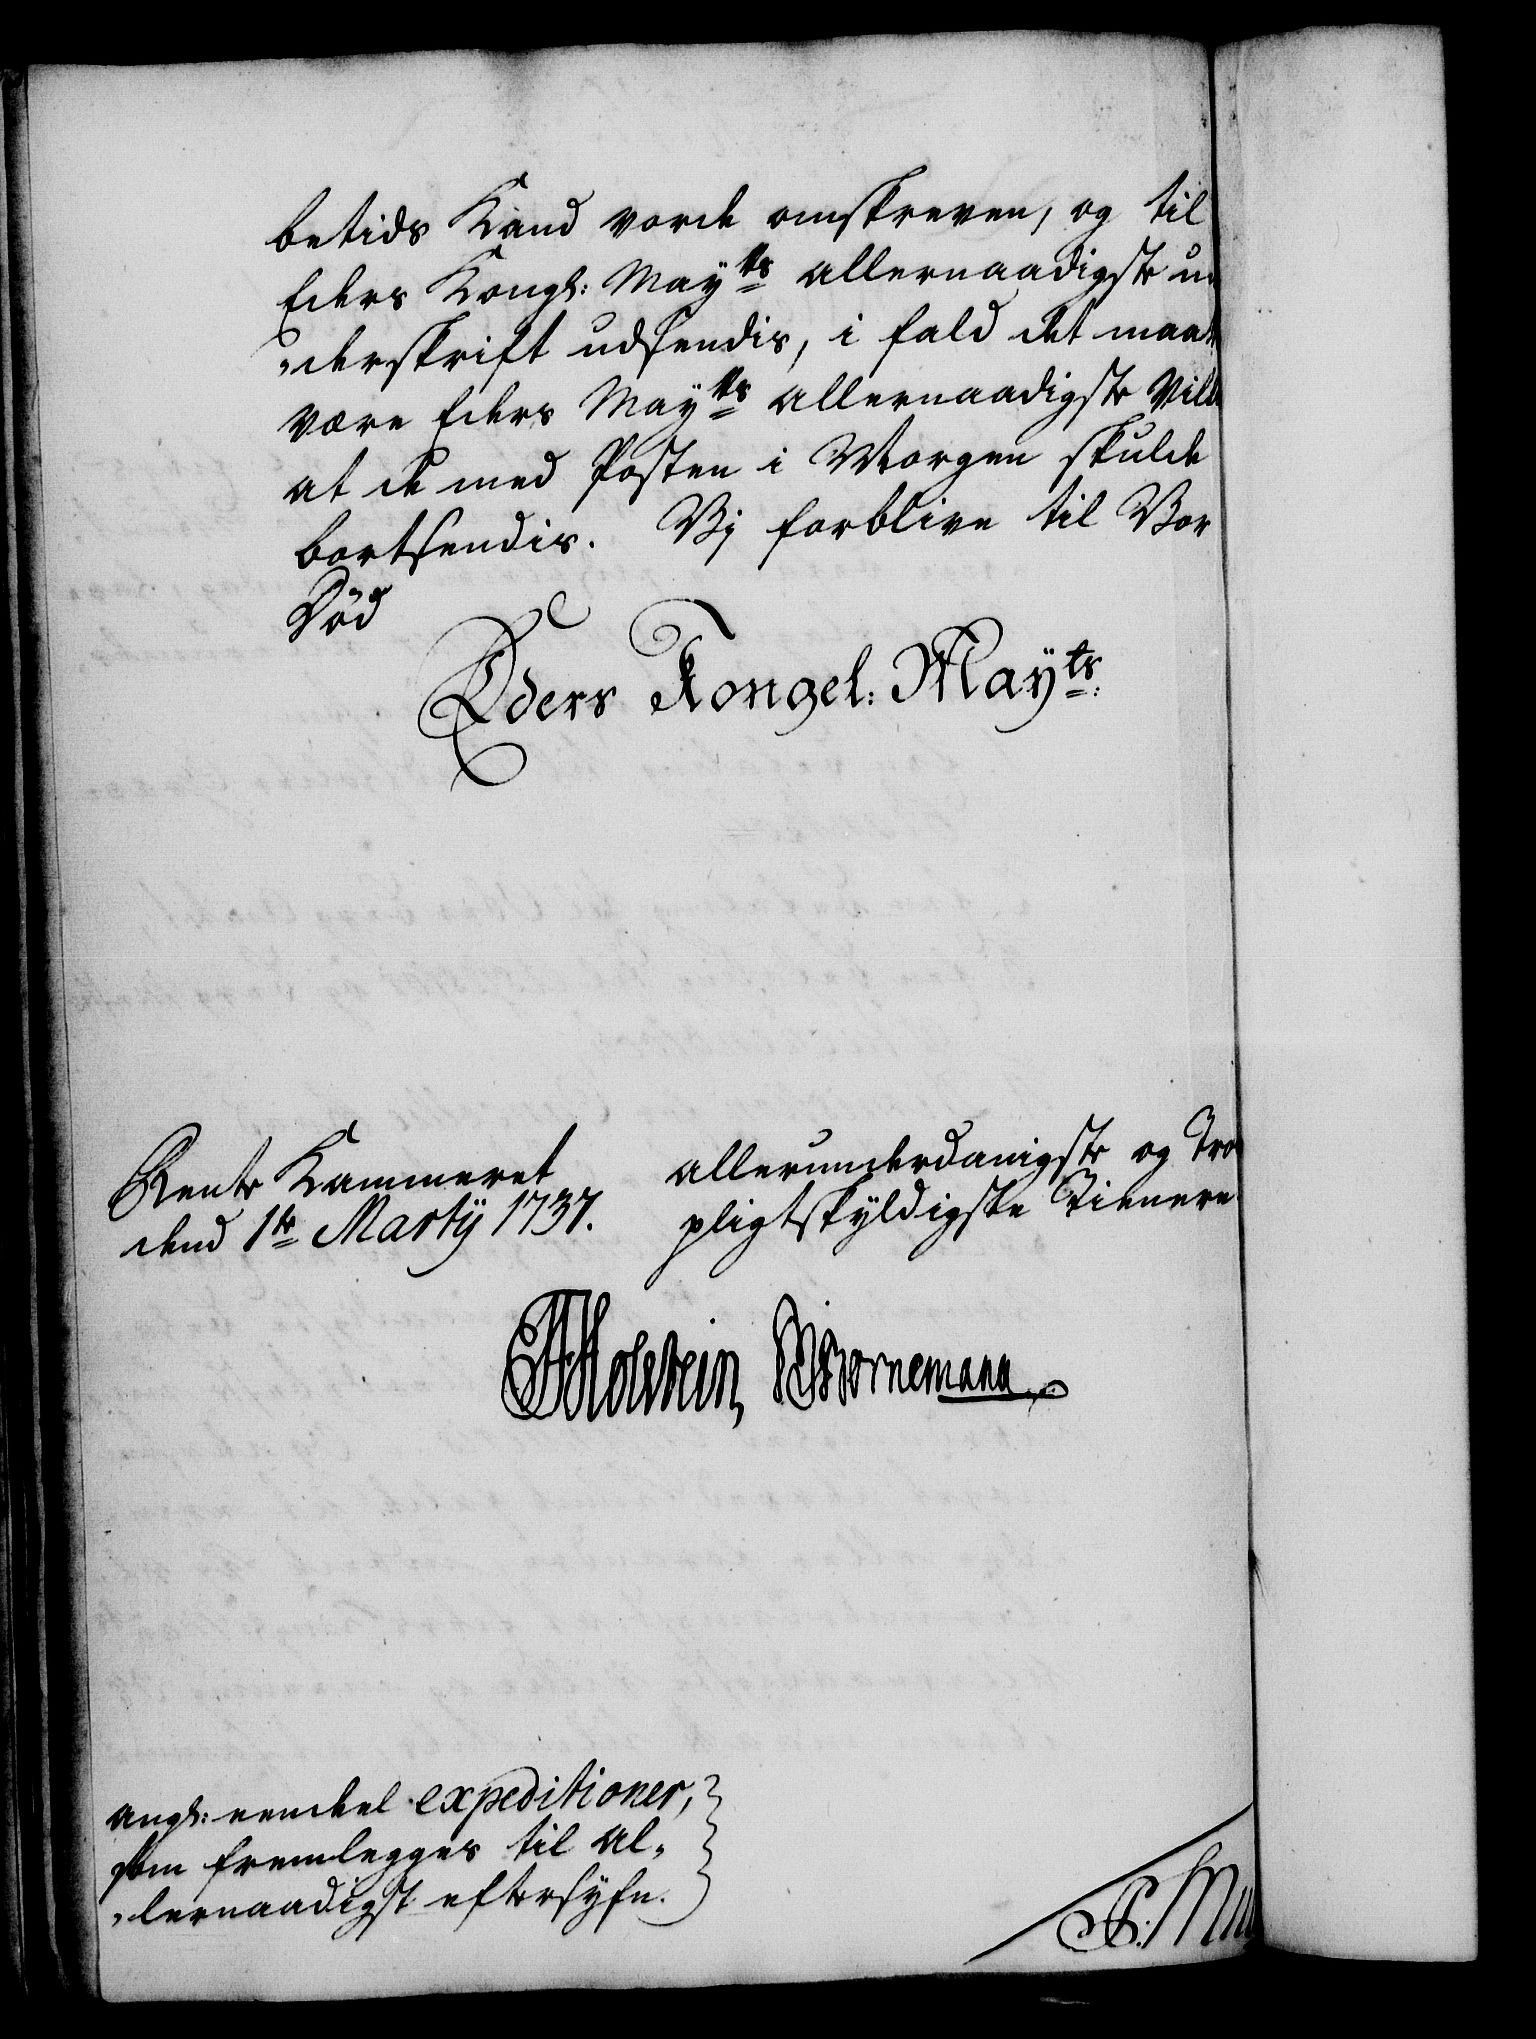 betids Kand vorde omskreven, og til
Eders Kongl: Mayts allernaadigste u
„derskrift udsendis, i fald det maat
være Eders Mayts allernaadigste Vill
at de med Posten i Morgen skulde
bortsendis. Vj forblive til Vor
Død
Eders Kongel: Mayts:
Rente Kammeret
dend 1te Martij 1737.
allerunderdanigste og Tro
pligtskyldigste Tienere
Holstein, Bornemann
angl: eendeel expeditioner,
som fremlegges til al„
„lernaadigst eftersyfn.